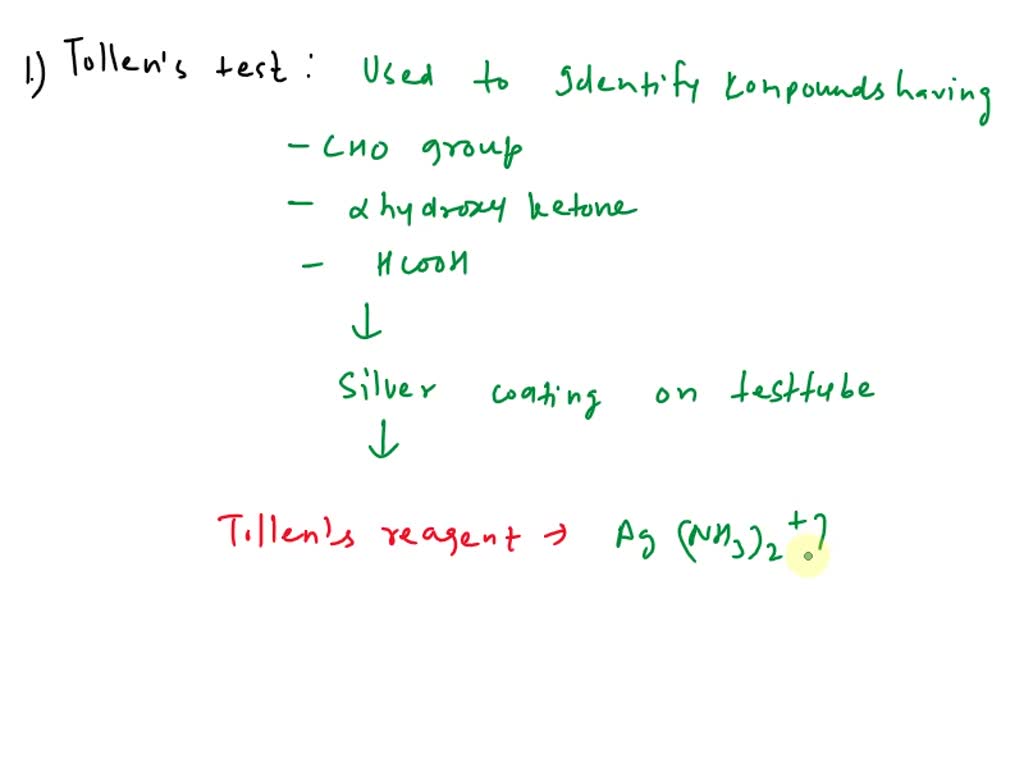 1.) Tollen's test : Used to Identify Kompounds having
- CHO group
- α hydroxy ketone
- HCOOH
↓
Silver coating on testtube
↓
Tillen's reagent → Ag (NH3)2+]